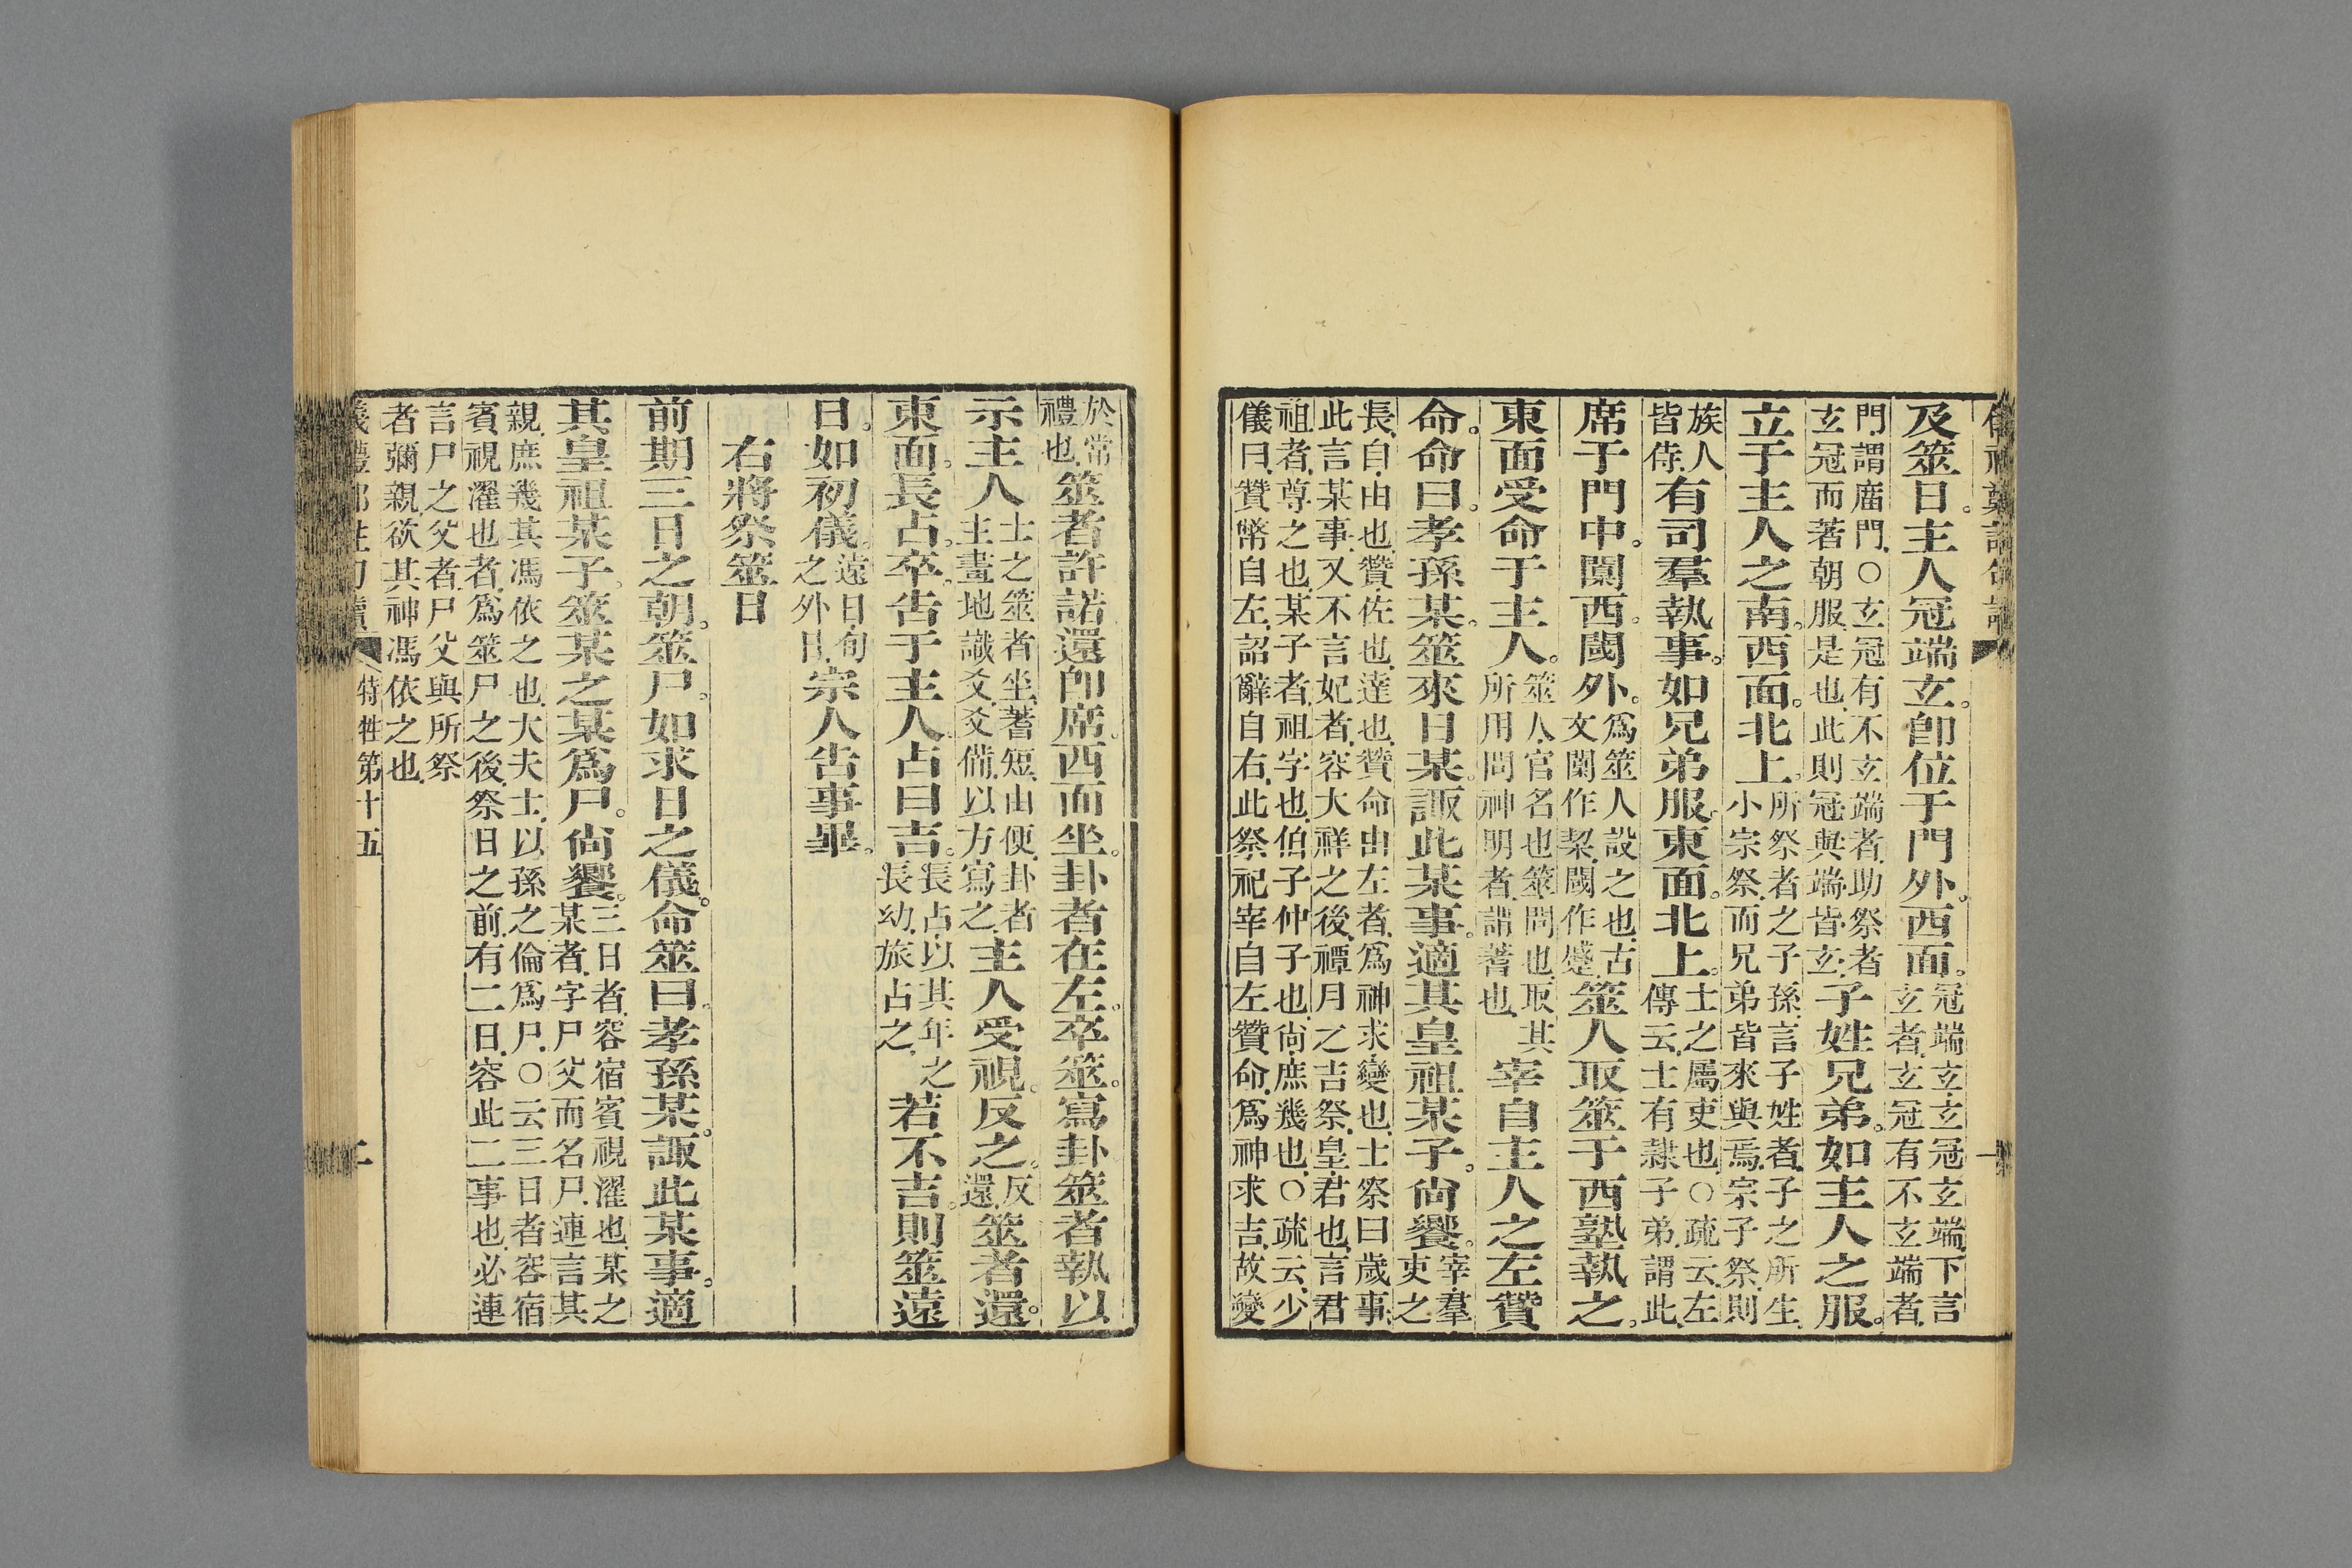 儀禮鄭註句讀
及筮日。主人冠端玄。卽位于門外。西面。冠端玄玄冠玄端下言玄者玄冠有不玄端者
門謂廟門○玄冠有不玄端者助祭者玄冠而著朝服是也此則冠與端皆玄子姓兄弟。如主人之服。
立于主人之南。西面。北上。所祭者之子孫言子姓者子之所生小宗祭而兄弟皆來與焉宗子祭則
族人皆侍有司羣執事。如兄弟服。東面。北上。士之屬吏也○疏云左傳云士有隸子弟謂此
席于門中。闑西。閾外。爲筮人設之也古文闑作槷閾作蹙筮人取筮于西塾執之。
東面受命于主人。筮人官名也筮問也取其所用問神明者謂蓍也宰自主人之左贊
命。命曰。孝孫某。筮來日某。諏此某事。適其皇祖某子。尙饗。宰羣吏之
長自由也贊佐也達也贊命由左者爲神求變也士祭曰歲事
此言某事又不言妃者容大祥之後禫月之吉祭皇君也言君
祖者尊之也某子者祖字也伯子仲子也尙庶幾也○疏云少
儀曰贊幣自左詔辭自右此祭祀宰自左贊命爲神求吉故變
於常禮也筮者許諾。還卽席。西面坐。卦者在左。卒筮。寫卦筮者執以
示主人士之筮者坐蓍短由便卦者主畫地識爻爻備以方寫之主人受視。反之。反還筮者還。
東面。長占。卒。告于主人。占曰吉。長占以其年之長幼旅占之若不吉。則筮遠
日。如初儀。遠日旬之外日宗人告事畢。
右將祭筮日
前期三日之朝。筮尸。如求日之儀。命筮曰。孝孫某。諏此某事。適
其皇祖某子。筮某之某爲尸。尙饗。三日者容宿賓視濯也某之某者字尸父而名尸連言其
親庶幾其馮依之也大夫士以孫之倫爲尸○云三日者容宿
賓視濯也者爲筮尸之後祭日之前有二日容此二事也必連
言尸之父者尸父與所祭
者彌親欲其神馮依之也
特牲第十五